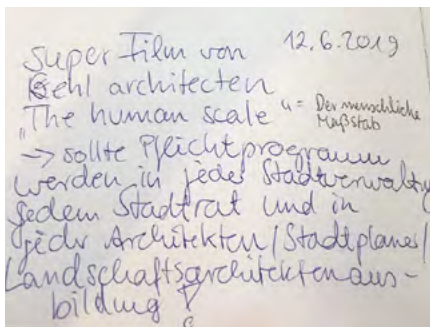 Super Film von 12.6.2019
Gehl architecten
"The human scale" = Der menschliche Maßstab
-> sollte Pflichtprogramm
werden in jeder Stadtverwaltg
jedem Stadtrat und in
jedr Architekten/Stadtplaner/
Landschaftsarchitektenaus-
bildung !